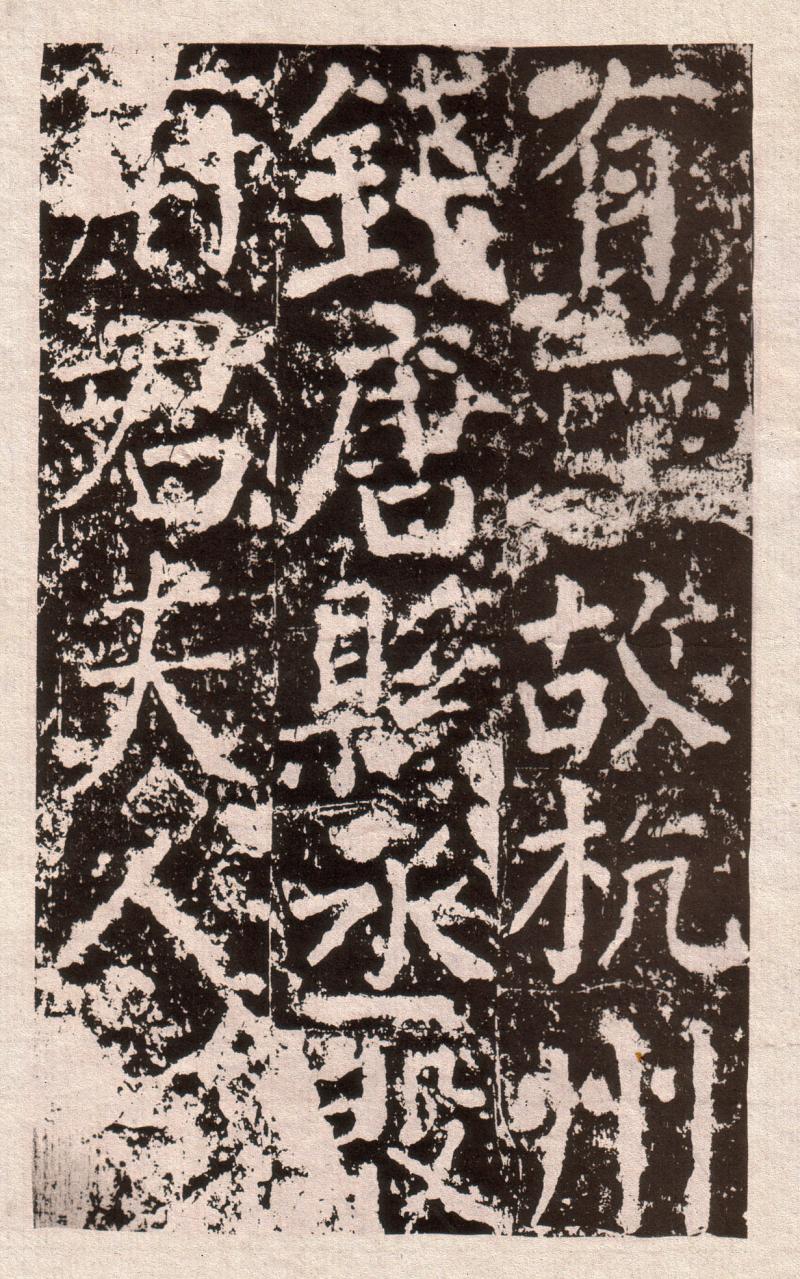 有故杭州
錢唐縣丞殷
府君夫人